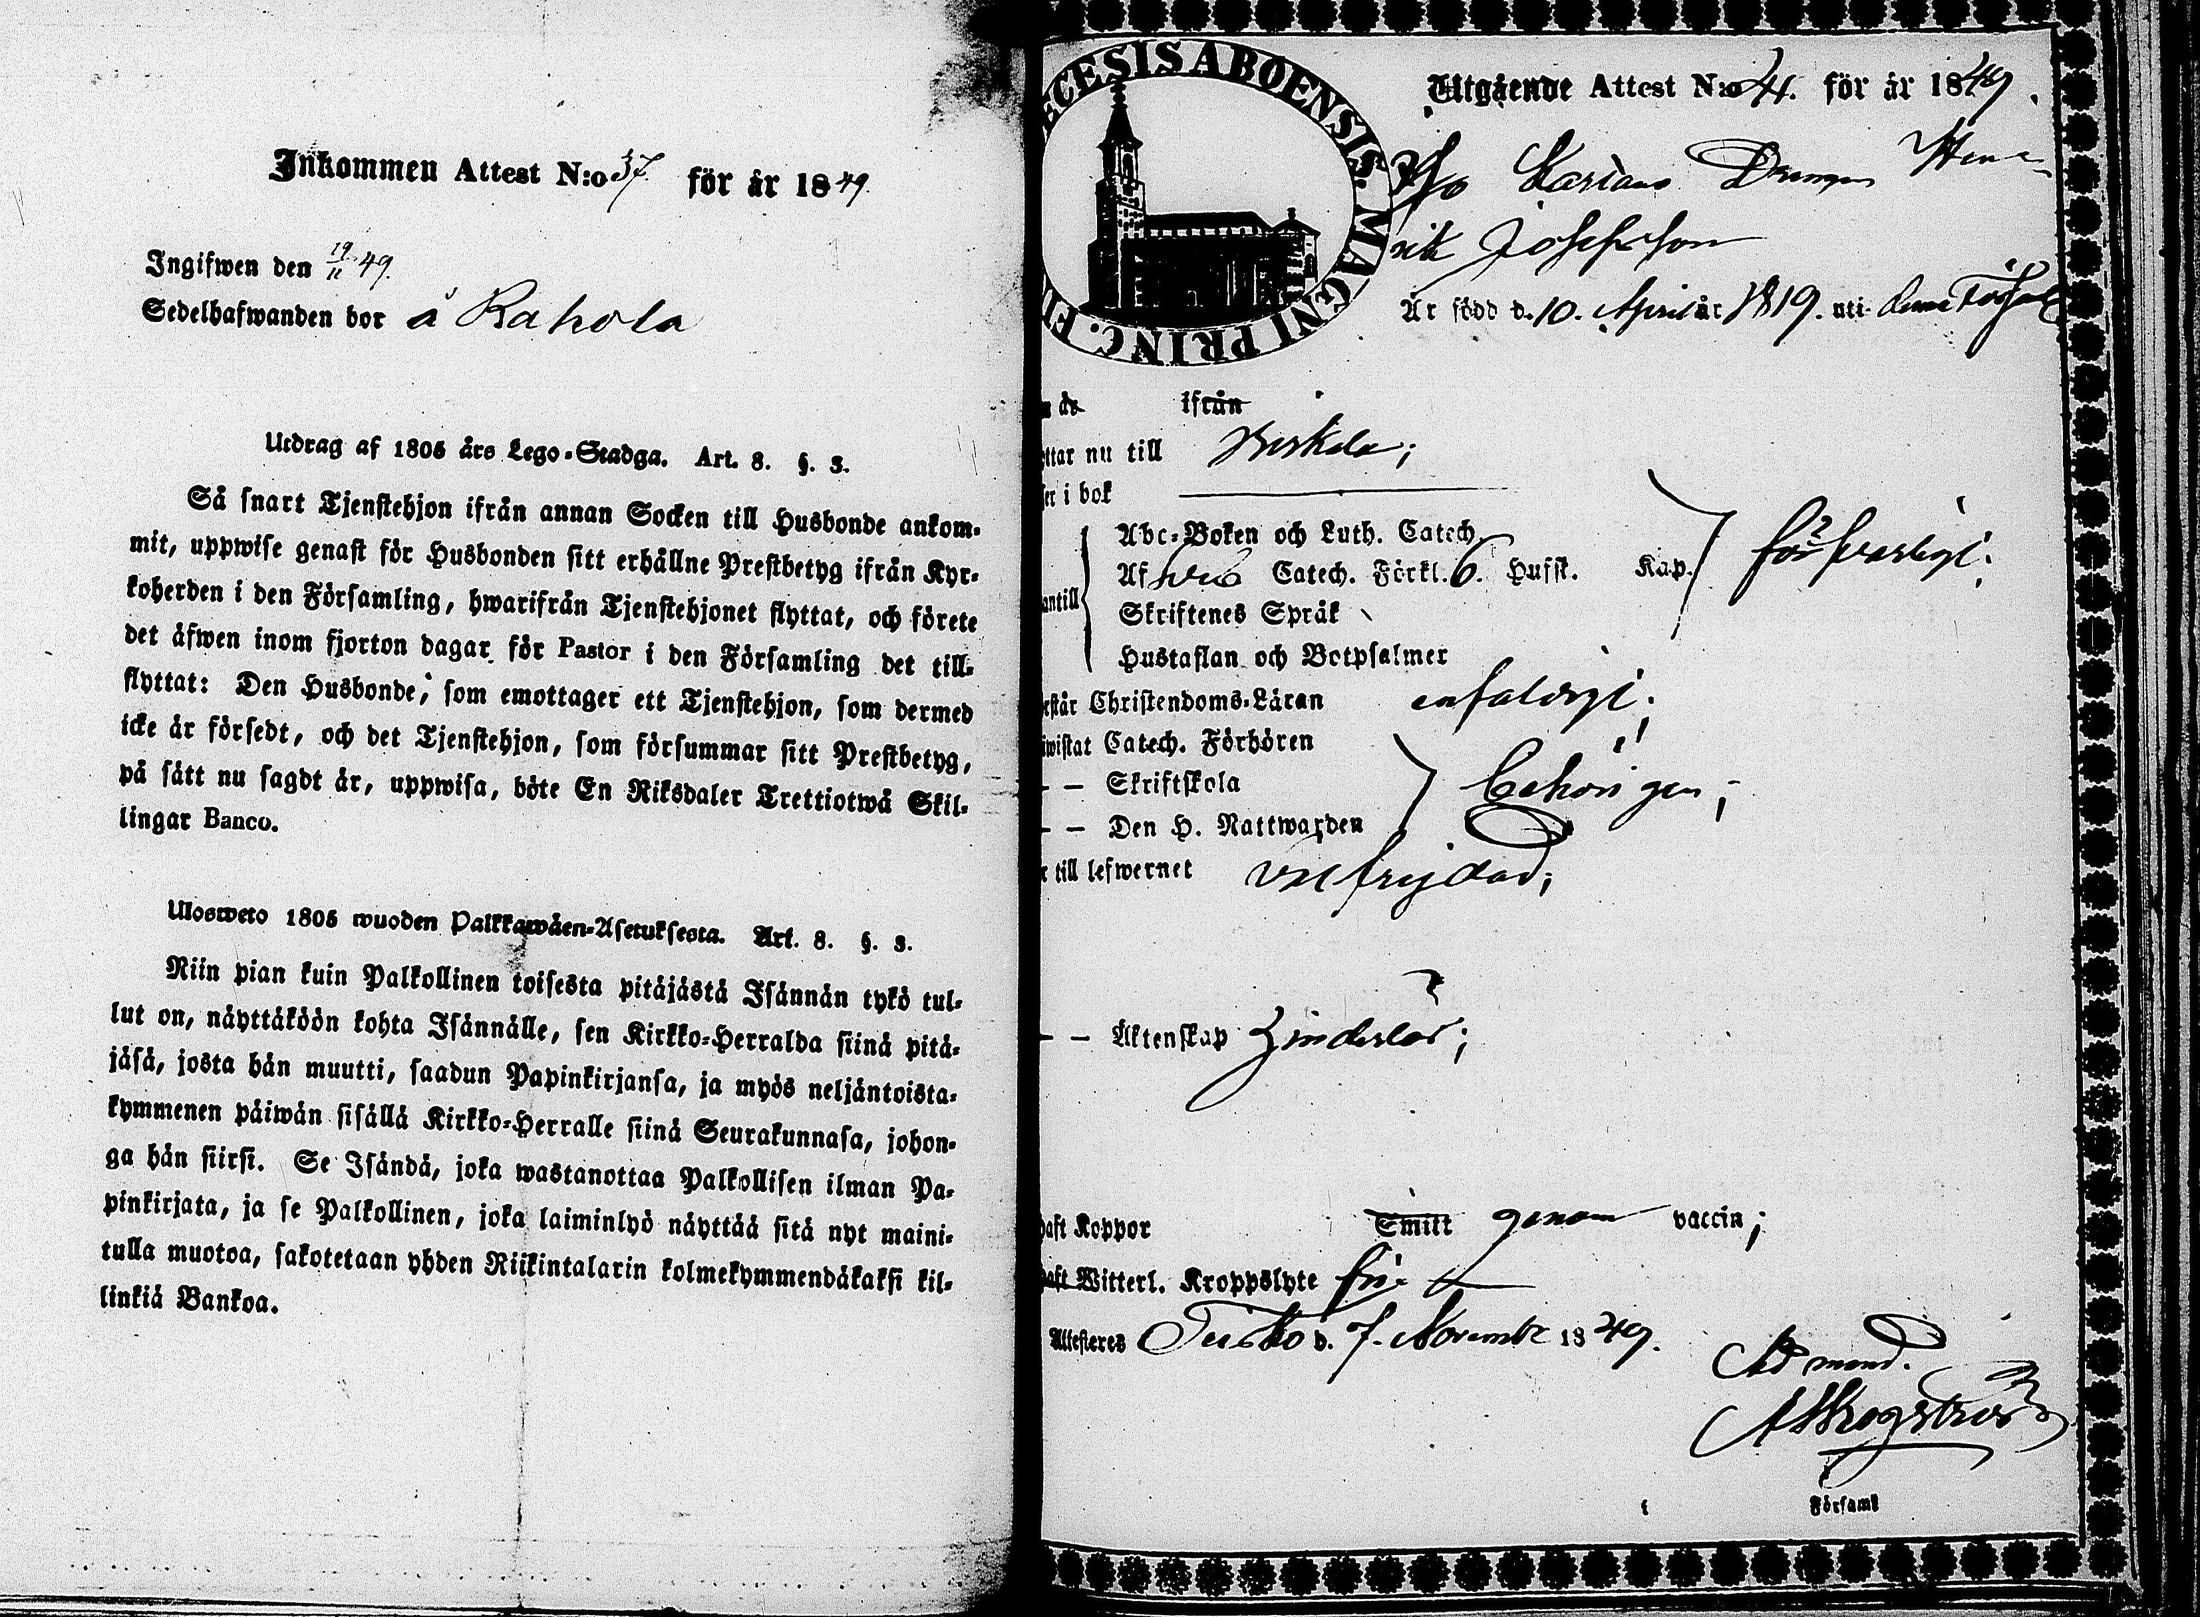 Inkommen Attest N:o 37. för år 1849.
Ingifwen den 19/11 49.
Sedelhafwanden bor å Rahola
Utdrag af 1805 års Lego-Stadga. Art. 8. §. 3.
Så snart Tjenstehjon ifrån annan Socken till Husbonde ankom-
mit, uppwise genast för Husbonden sitt erhållne Prestbetyg ifrån Kyr-
koherden i den Församling, hwarifrån Tjenstehjonet flyttat, och förete
det äfwen inom fjorton dagar för Pastor i den Församling det till-
flyttat: Den Husbonde, som emottager ett Tjenstehjon, som dermed
icke är försedt, och det Tjenstehjon, som försummar sitt Prestbetyg,
på sätt nu sagdt är, uppwisa, böte En Riksdaler Trettiotwå Skil-
lingar Banco.
Ulosweto 1805 wuoden Palkkawäen-Asetuksesta. Art. 8. §. 3.
Niin pian kuin Palkollinen toisesta pitäjästä Isännän tykö tul-
lut on, näyttäköön kohta Isännälle, sen Kirkko-Herralda siinä pitä-
jäsä, josta hän muutti, saadun Papinkirjansa, ja myös neljäntoista-
kymmenen päiwän sisällä Kirkko-Herralle siinä Seurakunnasa, johon-
ga hän siirsi. Se Isändä, joka wastanottaa Palkollisen ilman Pa-
pinkirjata, ja se Palkollinen, joka laiminlyö näyttää sitä nyt maini-
tulla muotoa, sakotetaan yhden Riikintalarin kolmekymmendäkaksi kil-
linkiä Bankoa.
ECESIS ABOENSIS. MAGNI PRINC. FI
Utgående Attest N:o 4. för år 1849.
Drengen Hen-
rik Josefsson
Är född d. 10. April år 1819. uti denna Förs
ifrån
ttar nu till Birkala;
er i bok
Abc-Boken och Luth. Catech.
Af Catech. Förkl. 6. Hufst. Kap.
antill Skriftenes Språk försvarligt;
Hustaflan och Botpsalmer
rstår Christendoms-Läran enfaldigt;
wistat Catech. Förhören
– – Skriftskola behörigen;
– – Den H. Nattwarden
r till lefwernet välfrejdad;
– – Äktenskap hinderlös;
haft Koppor Smitt genom vaccin;
haft Witterl. Kroppslyte fri
Attesteras d. 7. November 1849.
Församl